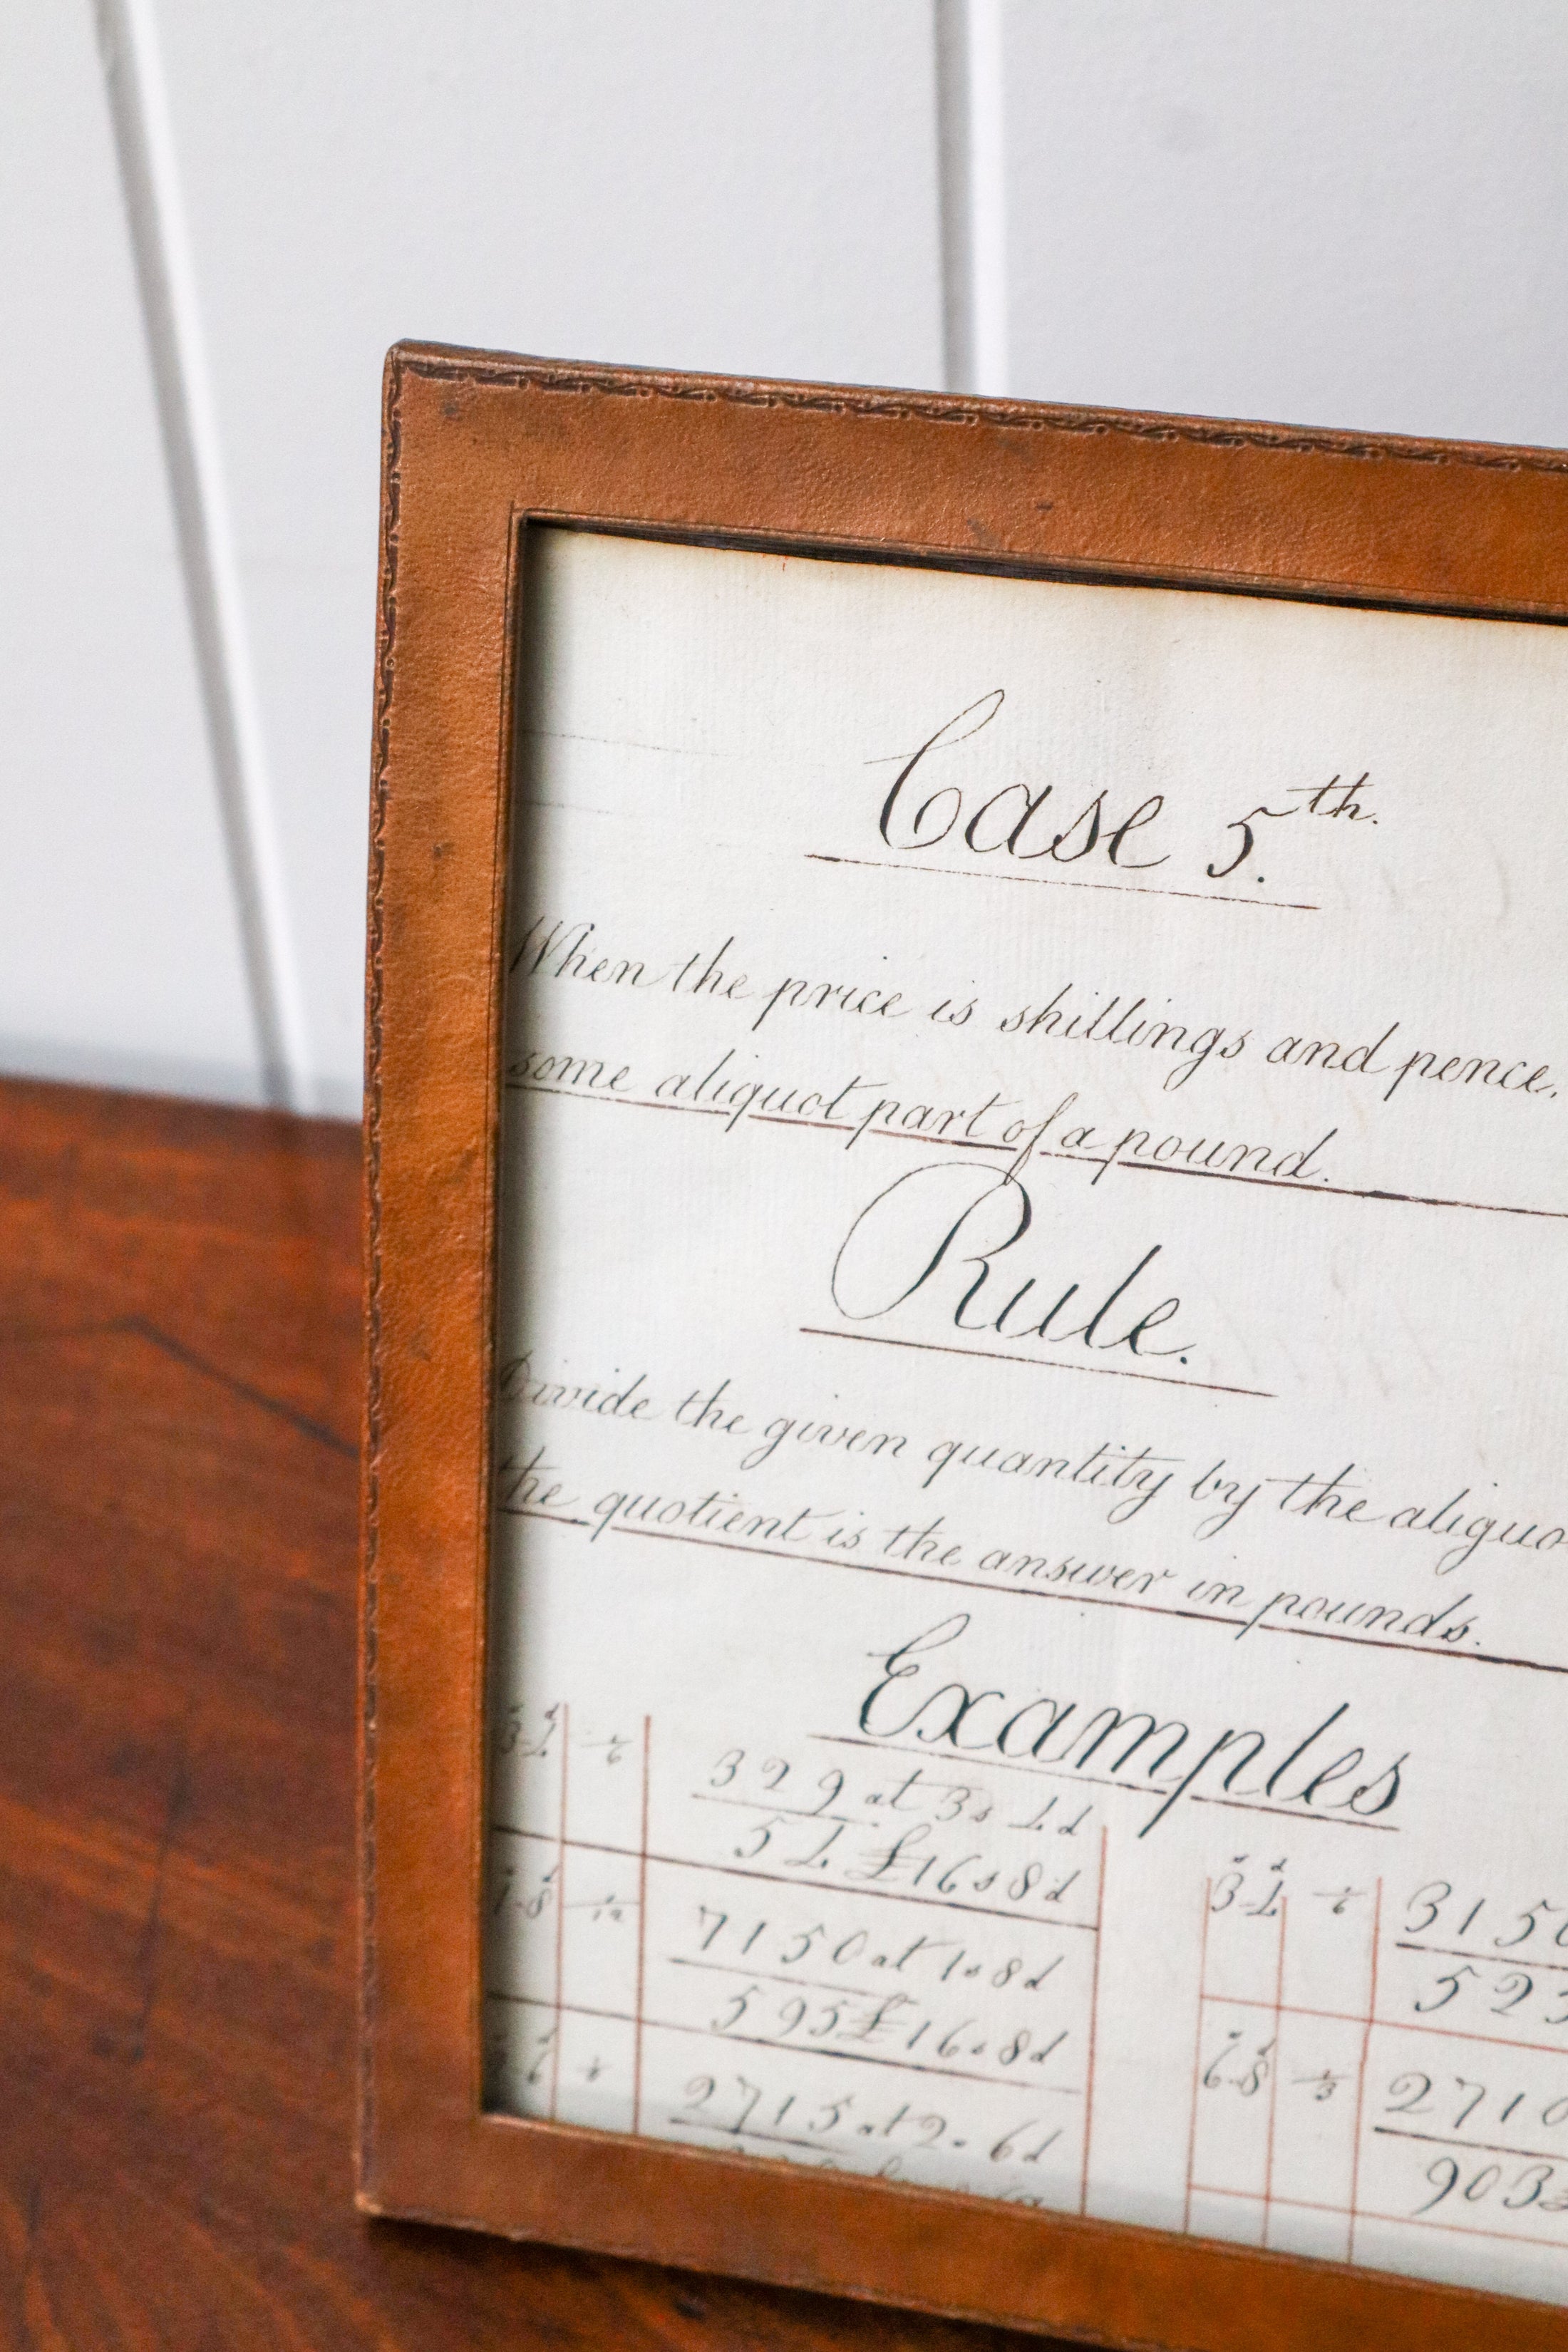 Case 5th.
When the price is shillings and pence,
some aliquot part of a pound.
Rule.
Divide the given quantity by the aliquo
the quotient is the answer in pounds.
Examples
3 4 1/6 329 at 3s 4d
54 £ 16s 8d
1 8 1/12 7150 at 1s 8d
595 £ 16s 8d
6 1/8 2715 at 2s 6d
3 4 1/6 315
52
6 8 1/3 271
903